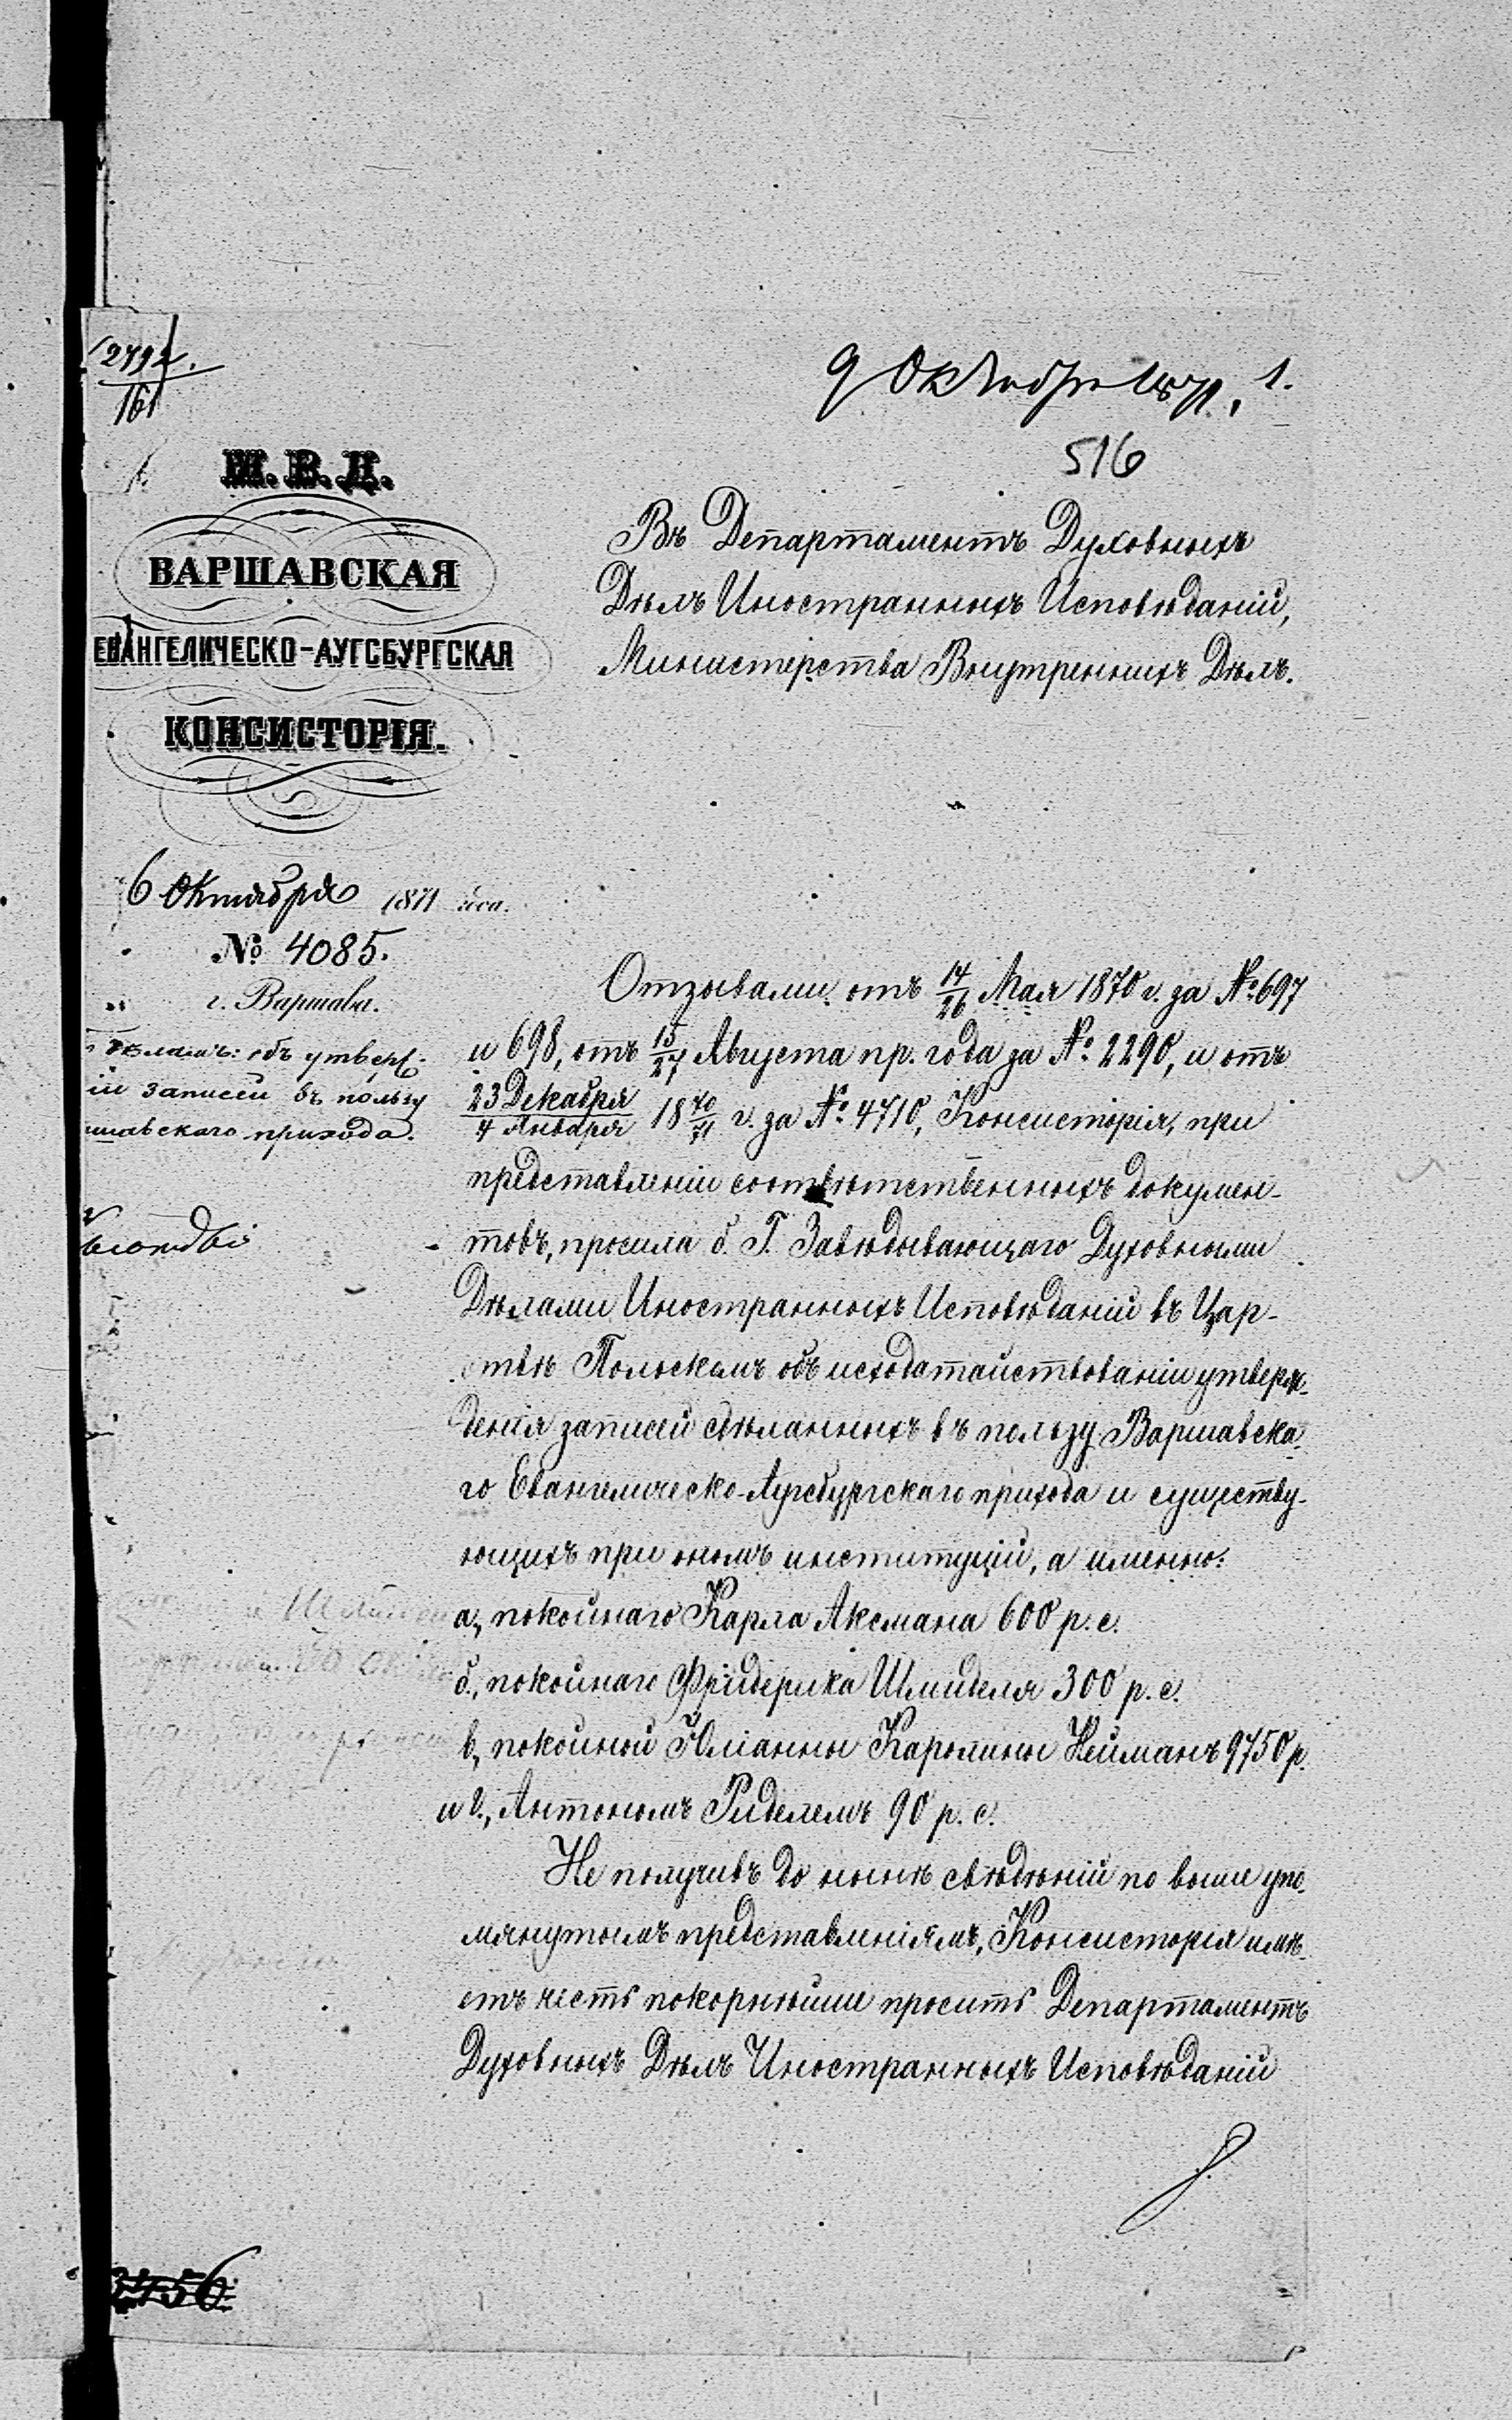 2792.
161
9 Октября 1871, 1.
516
М. В. Д.
ВАРШАВСКАЯ
ЕВАНГЕЛИЧЕСКО-АУГСБУРГСКАЯ
КОНСИСТОРІЯ.
6 Октября 1871 года.
№ 4085.
г. Варшава.
дѣламъ: объ утверж-
ій записей въ пользу
шавскаго прихода.
Въ Департаментъ Духовныхъ
Дѣлъ Иностранныхъ Исповѣданій,
Министерства Внутреннихъ Дѣлъ.
Отзывами отъ 14/26 Мая 1870 г. за № 697
и 698, отъ 15/27 Августа пр. года за № 2290, и отъ
23 Декабря/4 Января 18 70/71 г. за № 4710, Консисторія, при
представленіи соотвѣтственныхъ докумен-
товъ, просила б. Г. Завѣдывающаго Духовными
Дѣлами Иностранныхъ Исповѣданій въ Цар-
ствѣ Польскомъ объ исходатайствованіи утверж-
денія записей сдѣланныхъ въ пользу Варшавска-
го Евангелическо-Аугсбургскаго прихода и существу-
ющихъ при ономъ институцій, а именно:
а, покойнаго Карла Аксмана 600 р. с.
б., покойнаго Фридерика Шмиделя 300 р. с.
в, покойной Юліанны Каролины Нейманъ 9750 р.
и г., Антономъ Риделемъ 90 р. с.
Не получивъ до нынѣ свѣдѣній по выше упо-
мянутымъ представленіямъ, Консисторія имѣ-
етъ честь покорнѣйше просить Департаментъ
Духовныхъ Дѣлъ Иностранныхъ Исповѣданій